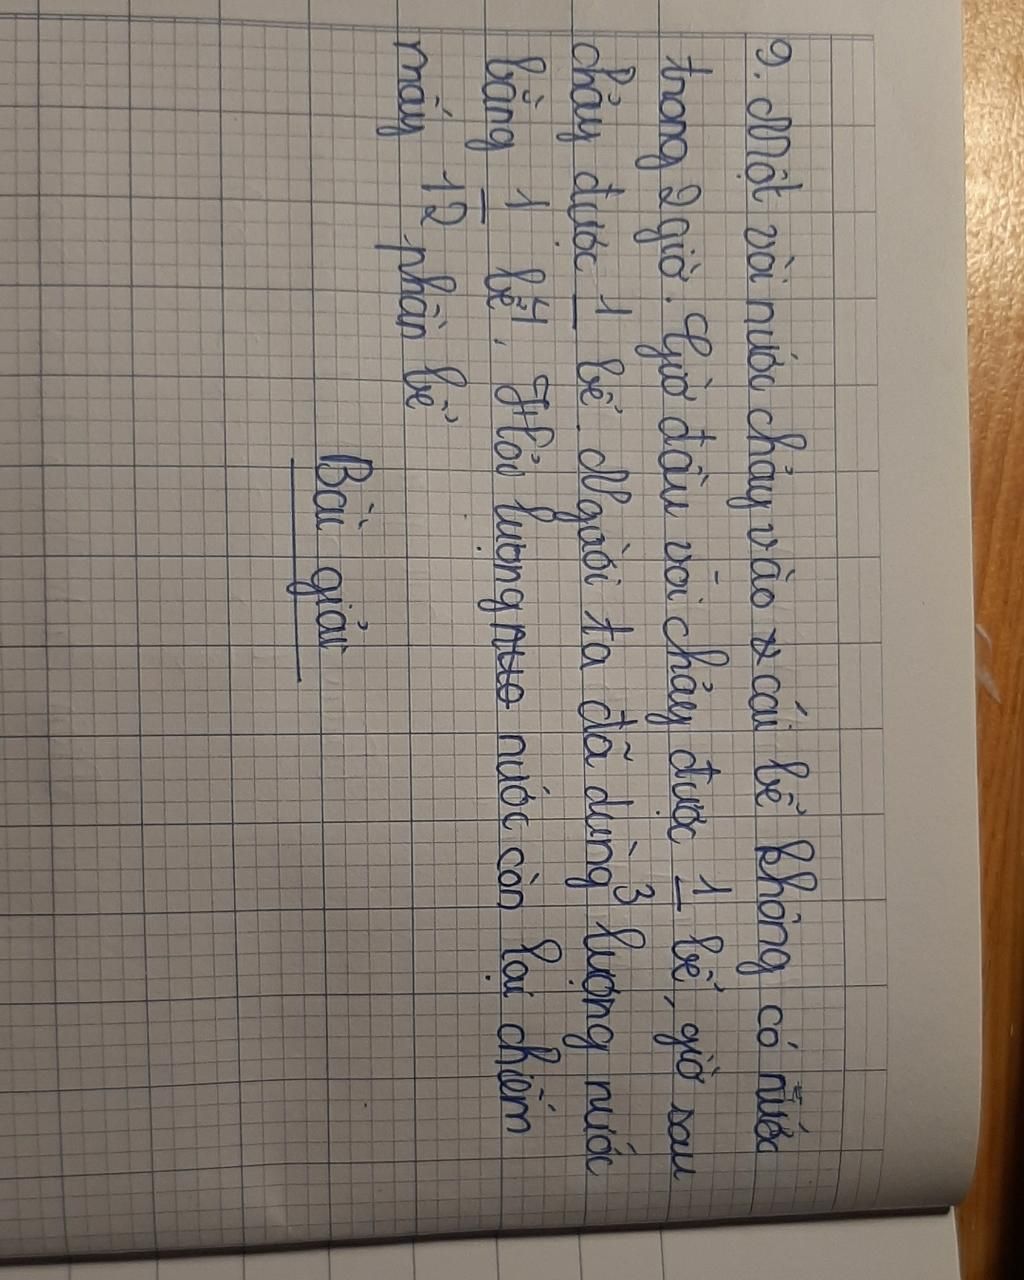 9. Một vòi nước chảy vào 1 cái bể không có nước
trong 2 giờ. Giờ đầu vòi chảy được 1/3 bể, giờ sau
chảy được 1/4 bể. Người ta đã dùng lượng nước
bằng 1/12 bể. Hỏi lượng nước còn lại chiếm
mấy phần bể
Bài giải